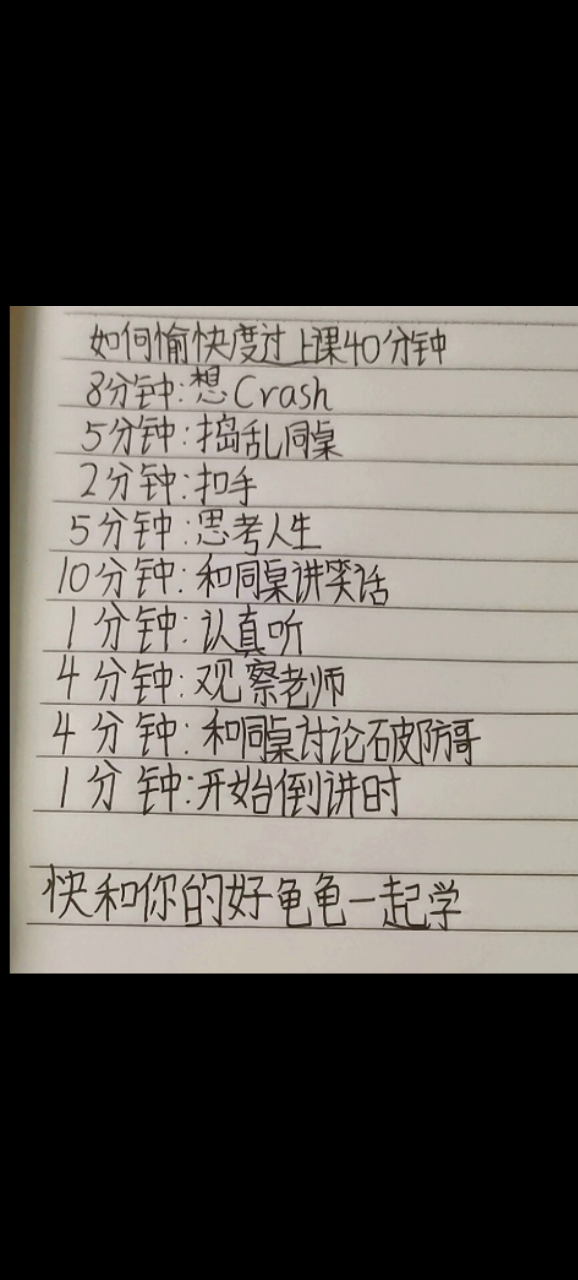 如何愉快度过上课40分钟
8分钟:想Crash
5分钟:捣乱同桌
2分钟:扣手
5分钟:思考人生
10分钟:和同桌讲笑话
1分钟:认真听
4分钟:观察老师
4分钟:和同桌讨论破防哥
1分钟:开始倒讲时
快和你的好龟龟一起学